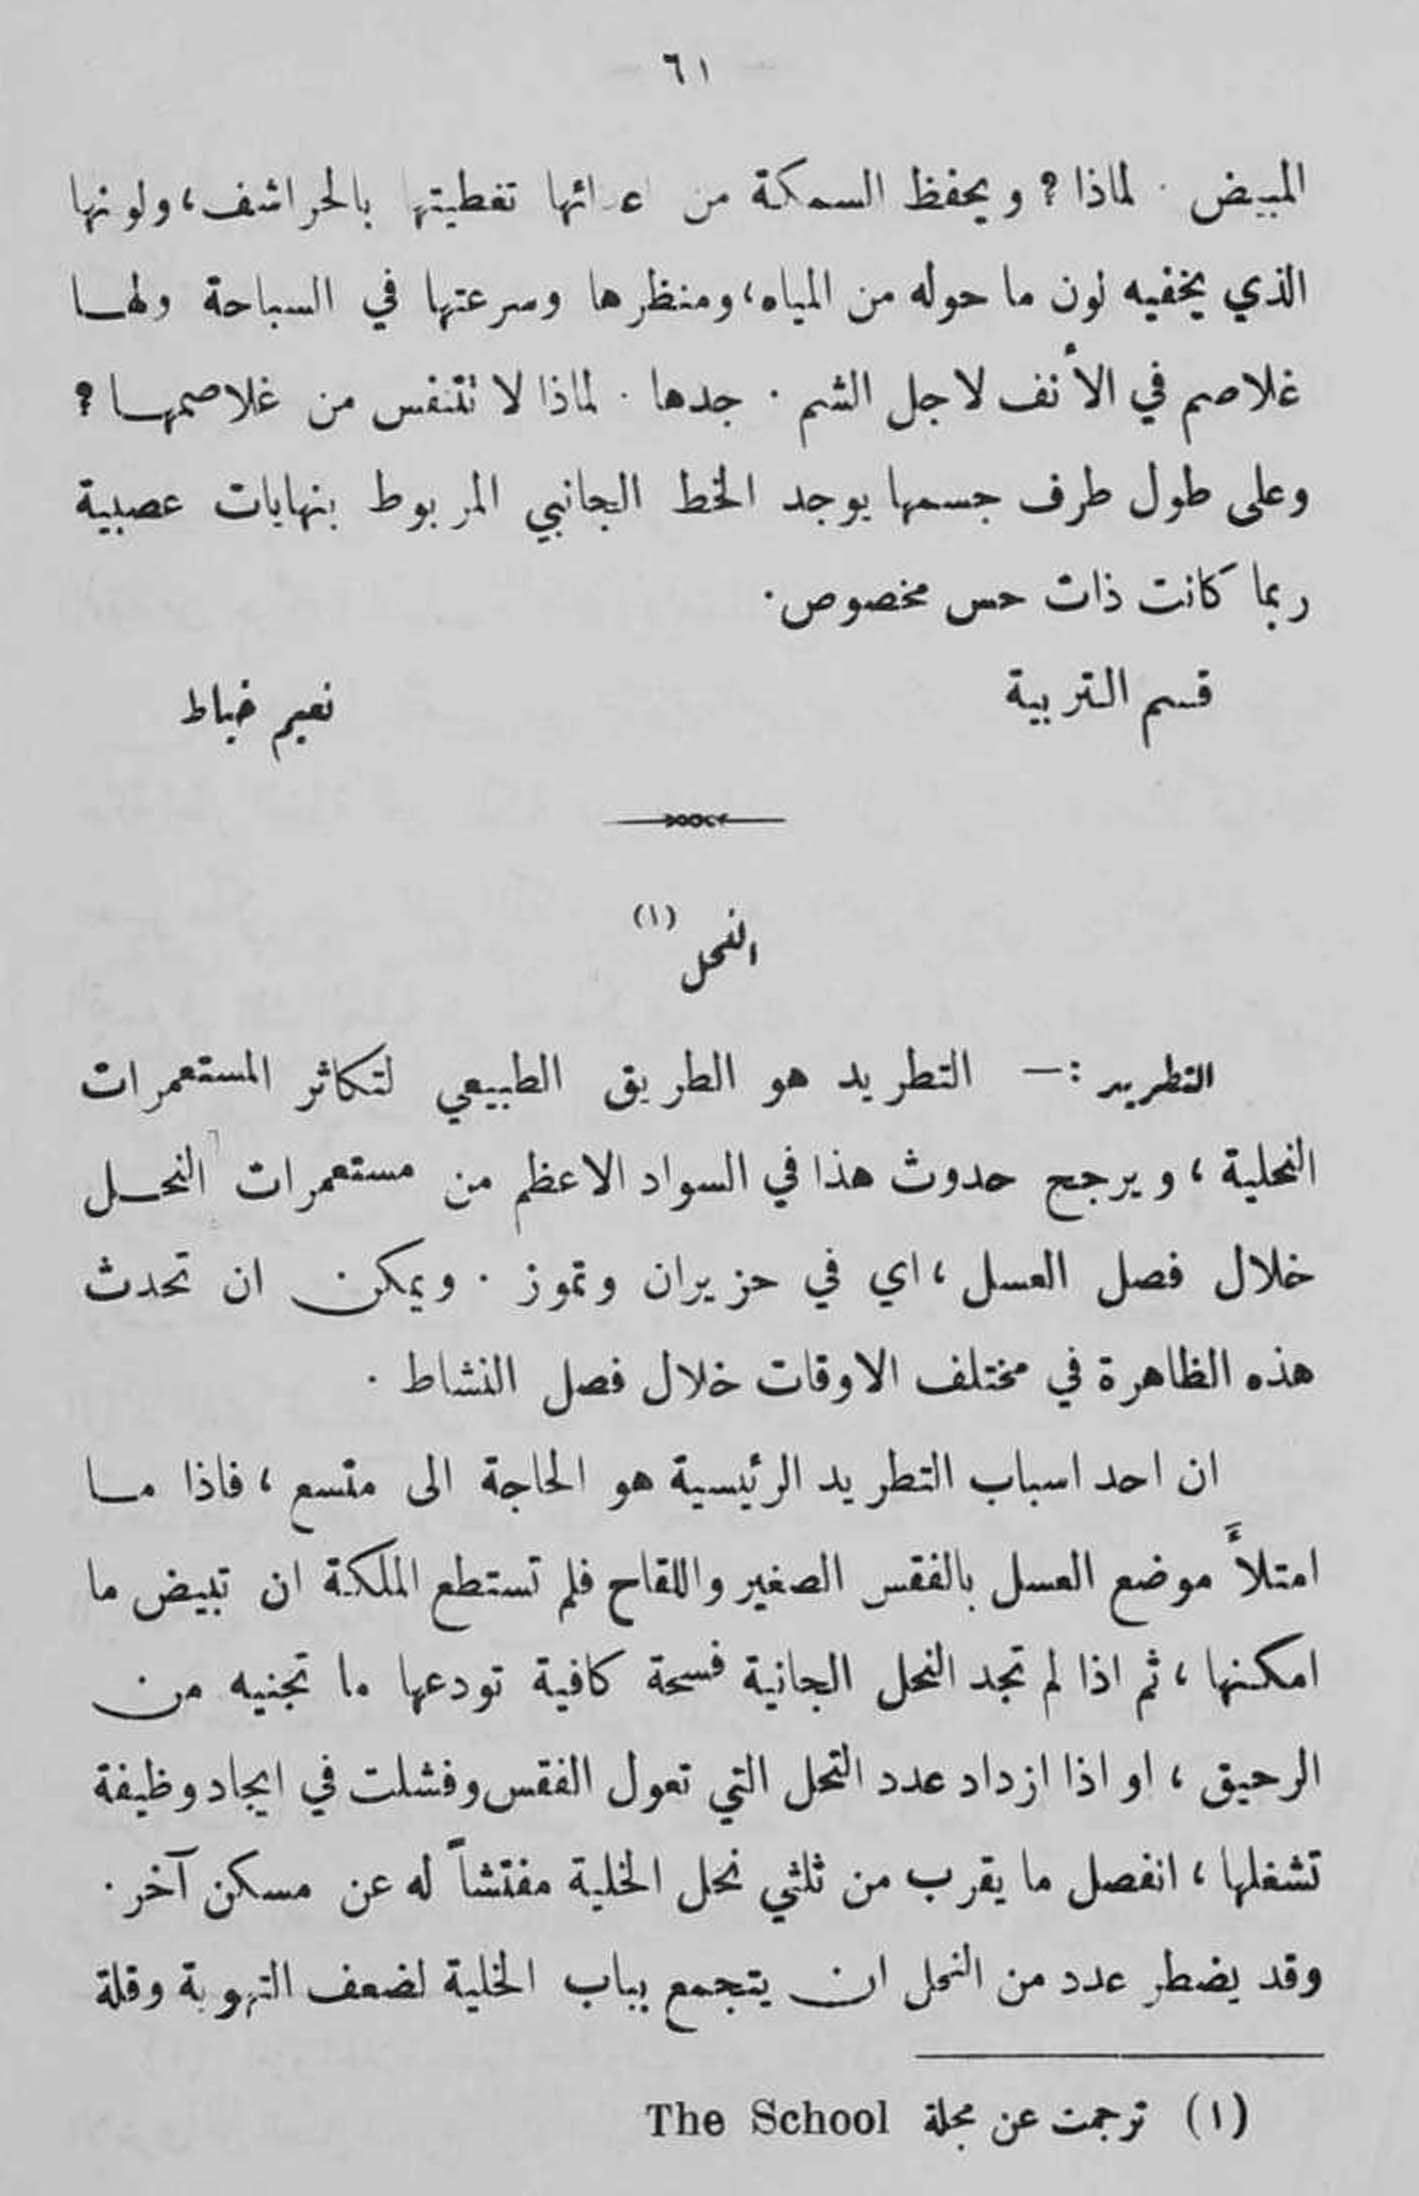 ٦١
المبيض . لماذا ? ويحفظ السمكة من اعدائها تغطيتها بالحراشف، ولونها
الذي يخفيه لون ما حوله من المياه، ومنظرها وسرعتها في السباحة ولها
غلاصم في الأنف لاجل الشم . جدها . لماذا لا تتنفس من غلاصمها ?
وعلى طول طرف جسمها يوجد الخط الجانبي المربوط بنهايات عصبية
ربما كانت ذات حس مخصوص .
قسم التربية نعيم خياط
النحل (١)
التطريد :— التطريد هو الطريق الطبيعي لتكاثر المستعمرات
النحلية ، ويرجح حدوث هذا في السواد الاعظم من مستعمرات النحل
خلال فصل العسل ، اي في حزيران وتموز . ويمكن ان تحدث
هذه الظاهرة في مختلف الاوقات خلال فصل النشاط .
ان احد اسباب التطريد الرئيسية هو الحاجة الى متسع ، فاذا ما
امتلأَ موضع العسل بالفقس الصغير واللقاح فلم تستطع الملكة ان تبيض ما
امكنها ، ثم اذا لم تجد النحل الجانية فسحة كافية تودعها ما تجنيه من
الرحيق ، او اذا ازداد عدد النحل التي تعول الفقس وفشلت في ايجاد وظيفة
تشغلها ، انفصل ما يقرب من ثلثي نحل الخلية مفتشاً له عن مسكن آخر .
وقد يضطر عدد من النحل ان يتجمع بباب الخلية لضعف التهوية وقلة
(١) ترجمت عن مجلة The School